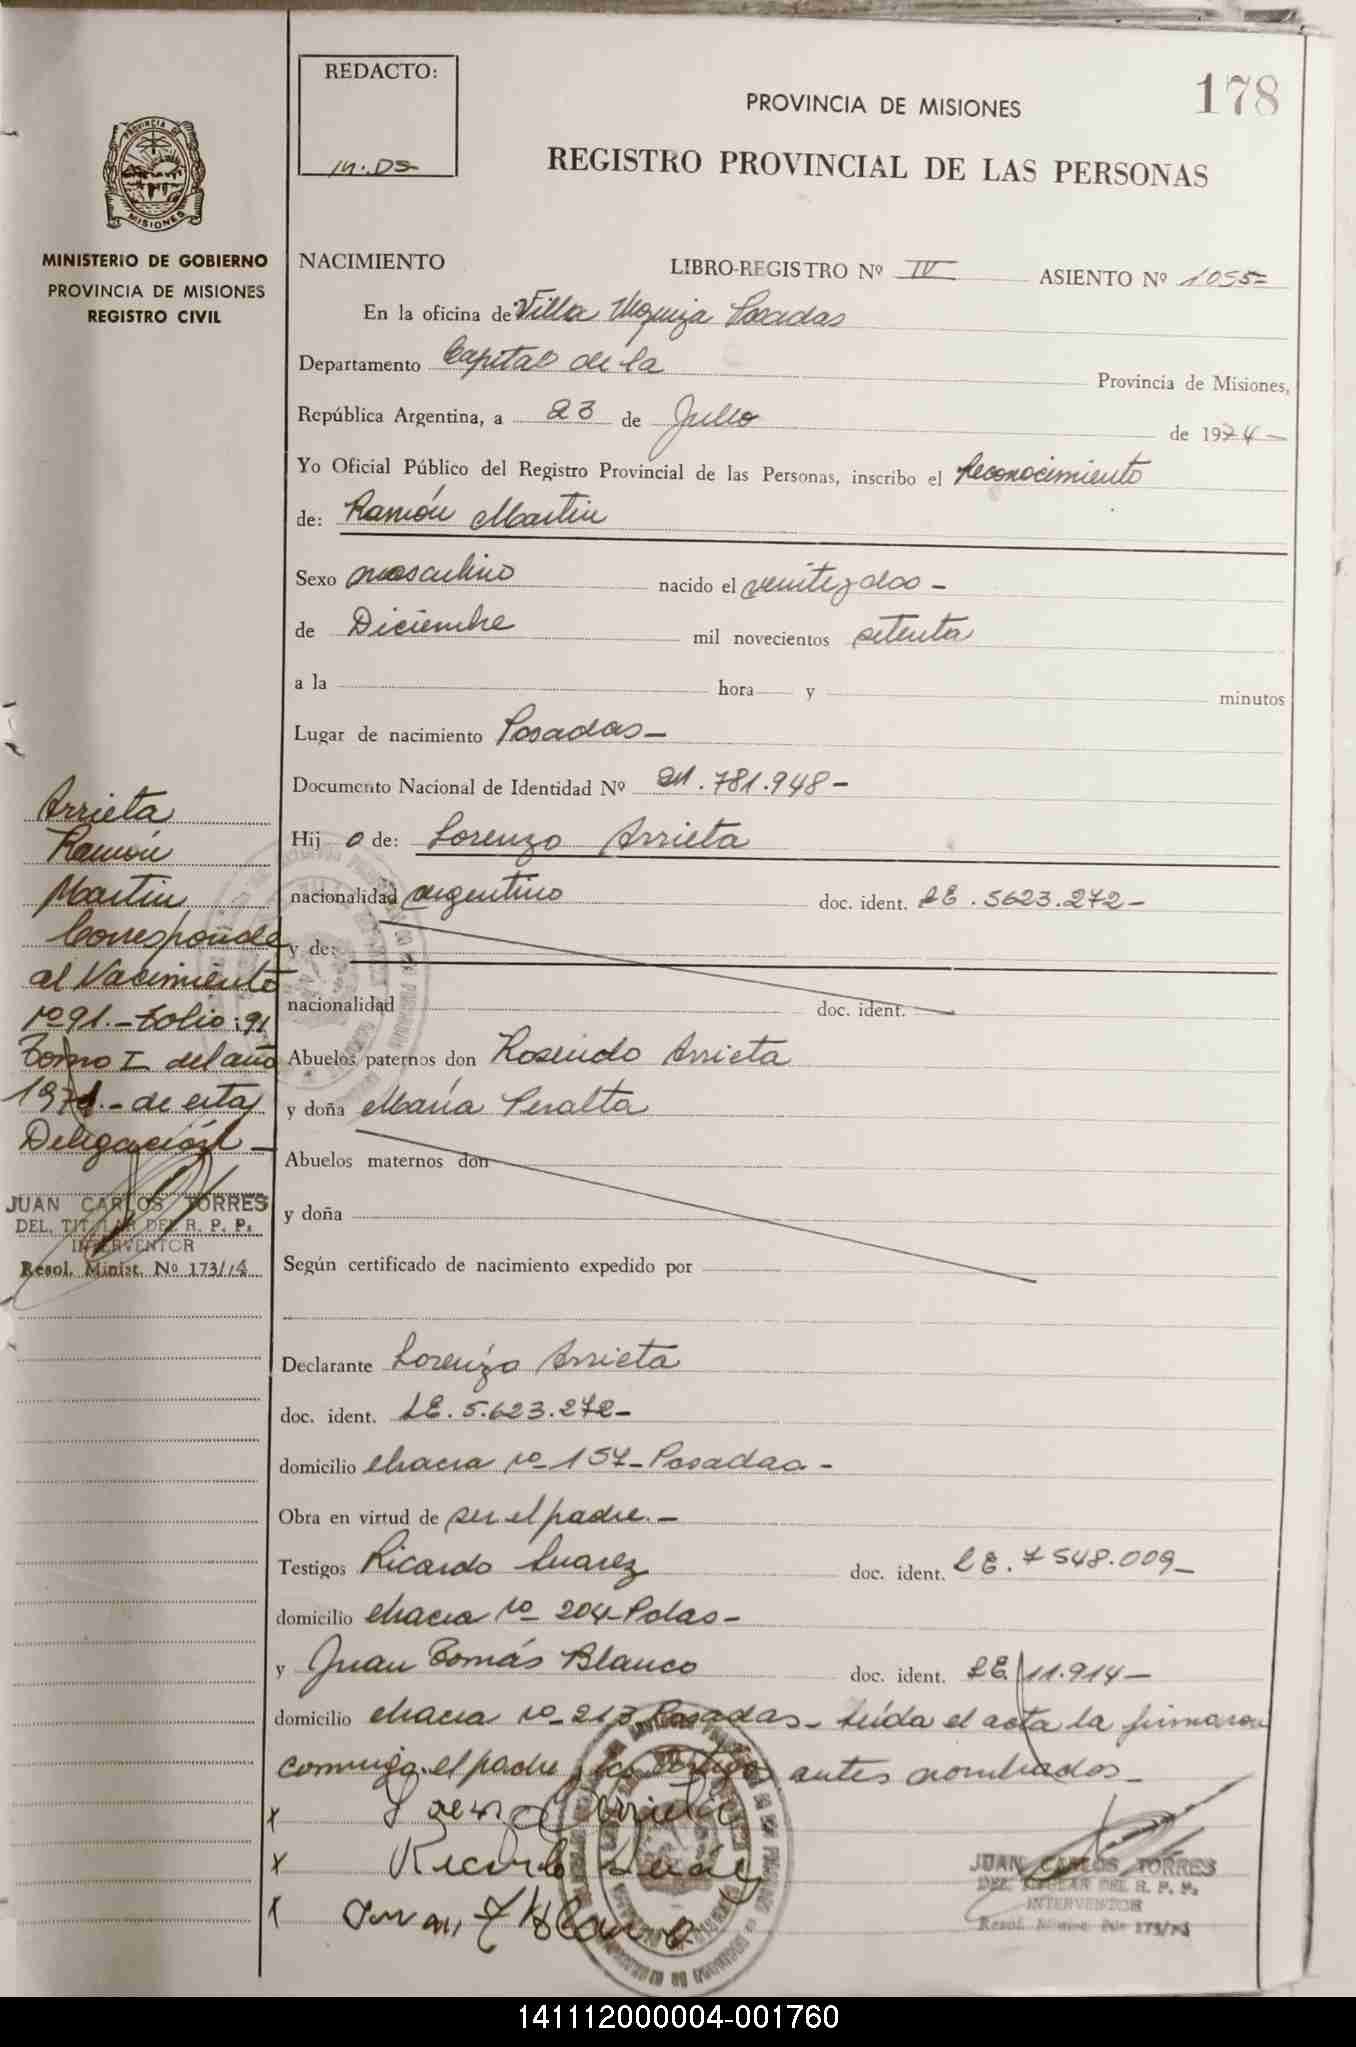 REDACTO:
178
PROVINCIA DE MISIONES
REGISTRO PROVINCIAL DE LAS PERSONAS
PROVINCIA DE
MISIONES
MINISTERIO DE GOBIERNO
PROVINCIA DE MISIONES
REGISTRO CIVIL
NACIMIENTO LIBRO-REGISTRO Nº IV ASIENTO Nº 1055=
En la oficina de Villa Urquiza Posadas
Departamento Capital de la Provincia de Misiones,
República Argentina, a 23 de Julio de 1974-
Yo Oficial Público del Registro Provincial de las Personas, inscribo el Reconocimiento
de: Ramón Martin
Sexo masculino nacido el veintey dos -
de Diciembre mil novecientos setenta
a la hora y minutos
Lugar de nacimiento Posadas-
Documento Nacional de Identidad Nº 21.781.948-
Hij o de: Lorenzo Arrieta
nacionalidad argentino doc. ident. LE. 5623.272-
y de:
nacionalidad doc. ident.
Abuelos paternos don Rosendo Arrieta
y doña María Peralta
Abuelos maternos don
y doña
Según certificado de nacimiento expedido por
Declarante Lorenzo Arrieta
doc. ident. LE. 5.623.272-
domicilio chacra nº 157- Posadas -
Obra en virtud de ser el padre.-
Testigos Ricardo Suarez doc. ident. LE. 7548.009-
domicilio chacra nº 204- Pdas-
y Juan Tomás Blanco doc. ident. LE. 11.914-
domicilio chacra nº 213 Posadas- Leída el acta la firmaron
conmigo el padre y los testigos antes nombrados-
x Lorenzo Arrieta
x Ricardo Suarez
x Juan T Blanco
JUAN CARLOS TORRES
DEL. TITULAR DEL R. P. P.
INTERVENTOR
Resol. Minist. Nº 173/74
Arrieta
Ramón
Martin
Corresponde
al Nacimiento
nº 91.- Folio: 91
Tomo I del año
1971.- de esta
Delegación-
JUAN CARLOS TORRES
DEL. TITULAR DEL R. P. P.
INTERVENTOR
Resol. Minist. Nº 173/74
141112000004-001760